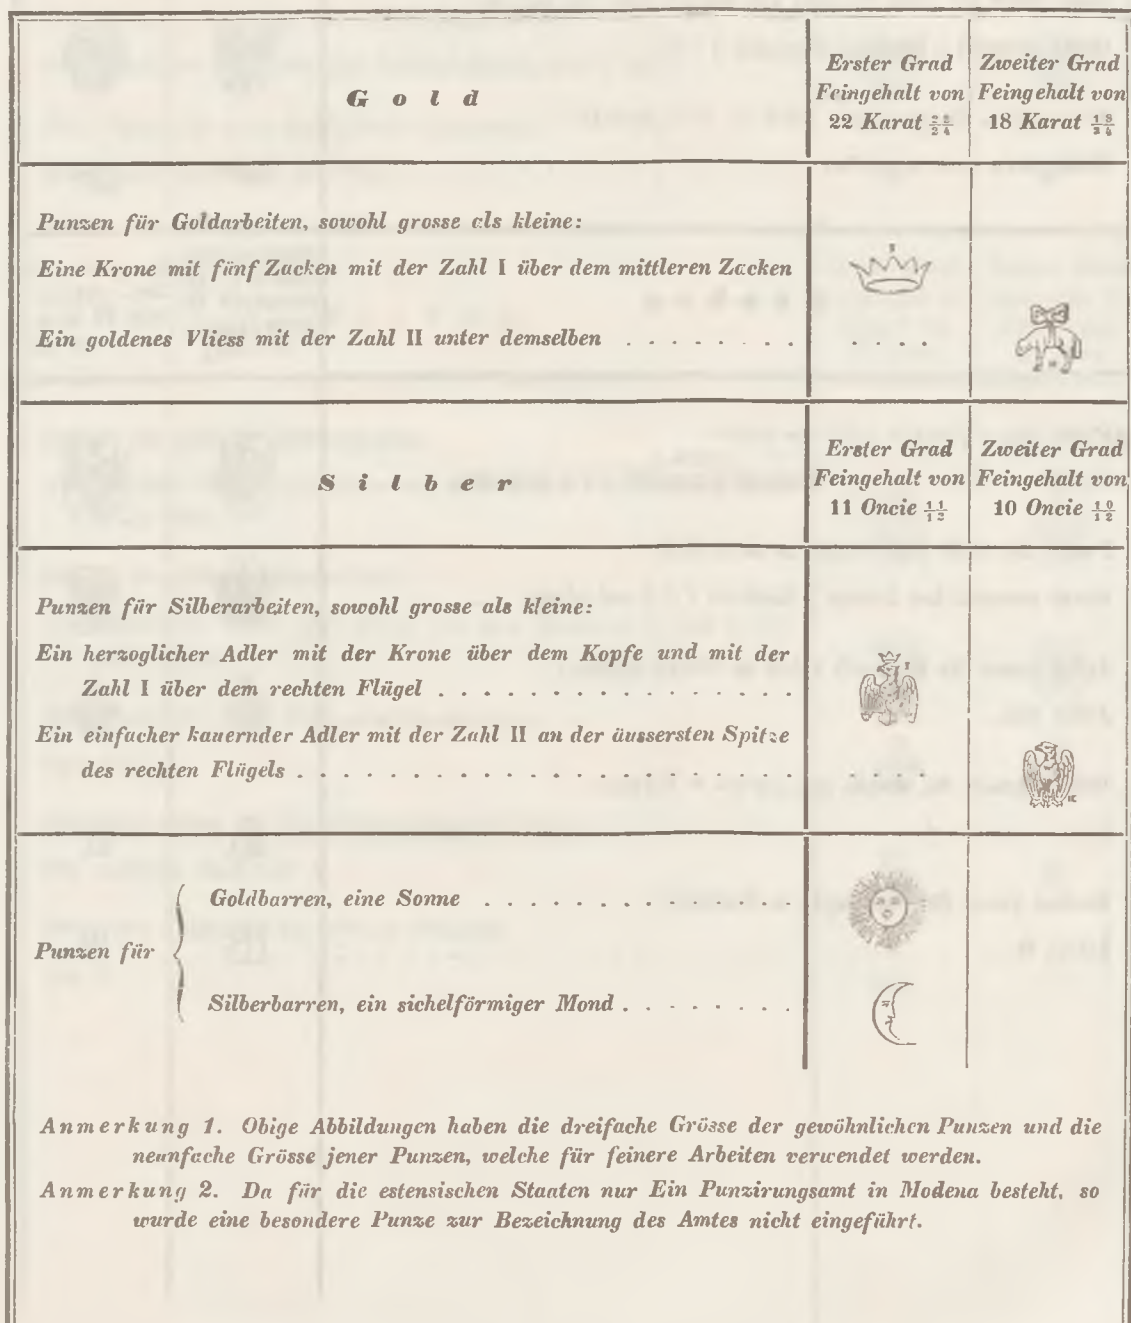 Gold
Erster Grad
Feingehalt von
22 Karat 22/24
Zweiter Grad
Feingehalt von
18 Karat 18/24
Punzen für Goldarbeiten, sowohl grosse als kleine:
Eine Krone mit fünf Zacken mit der Zahl I über dem mittleren Zacken
Ein goldenes Vliess mit der Zahl II unter demselben . . . . . . . . . . . .
Silber
Erster Grad
Feingehalt von
11 Oncie 11/12
Zweiter Grad
Feingehalt von
10 Oncie 10/12
Punzen für Silberarbeiten, sowohl grosse als kleine:
Ein herzoglicher Adler mit der Krone über dem Kopfe und mit der
Zahl I über dem rechten Flügel . . . . . . . . . . . . . .
I
Ein einfacher kauernder Adler mit der Zahl II an der äussersten Spitze
des rechten Flügels . . . . . . . . . . . . . . . . . . . . . . . .
Punzen für
Goldbarren, eine Sonne . . . . . . . . . . . . .
Silberbarren, ein sichelförmiger Mond . . . . . . . .
Anmerkung 1. Obige Abbildungen haben die dreifache Grösse der gewöhnlichen Punzen und die
neunfache Grösse jener Punzen, welche für feinere Arbeiten verwendet werden.
Anmerkung 2. Da für die estensischen Staaten nur Ein Punzirungsamt in Modena besteht, so
wurde eine besondere Punze zur Bezeichnung des Amtes nicht eingeführt.